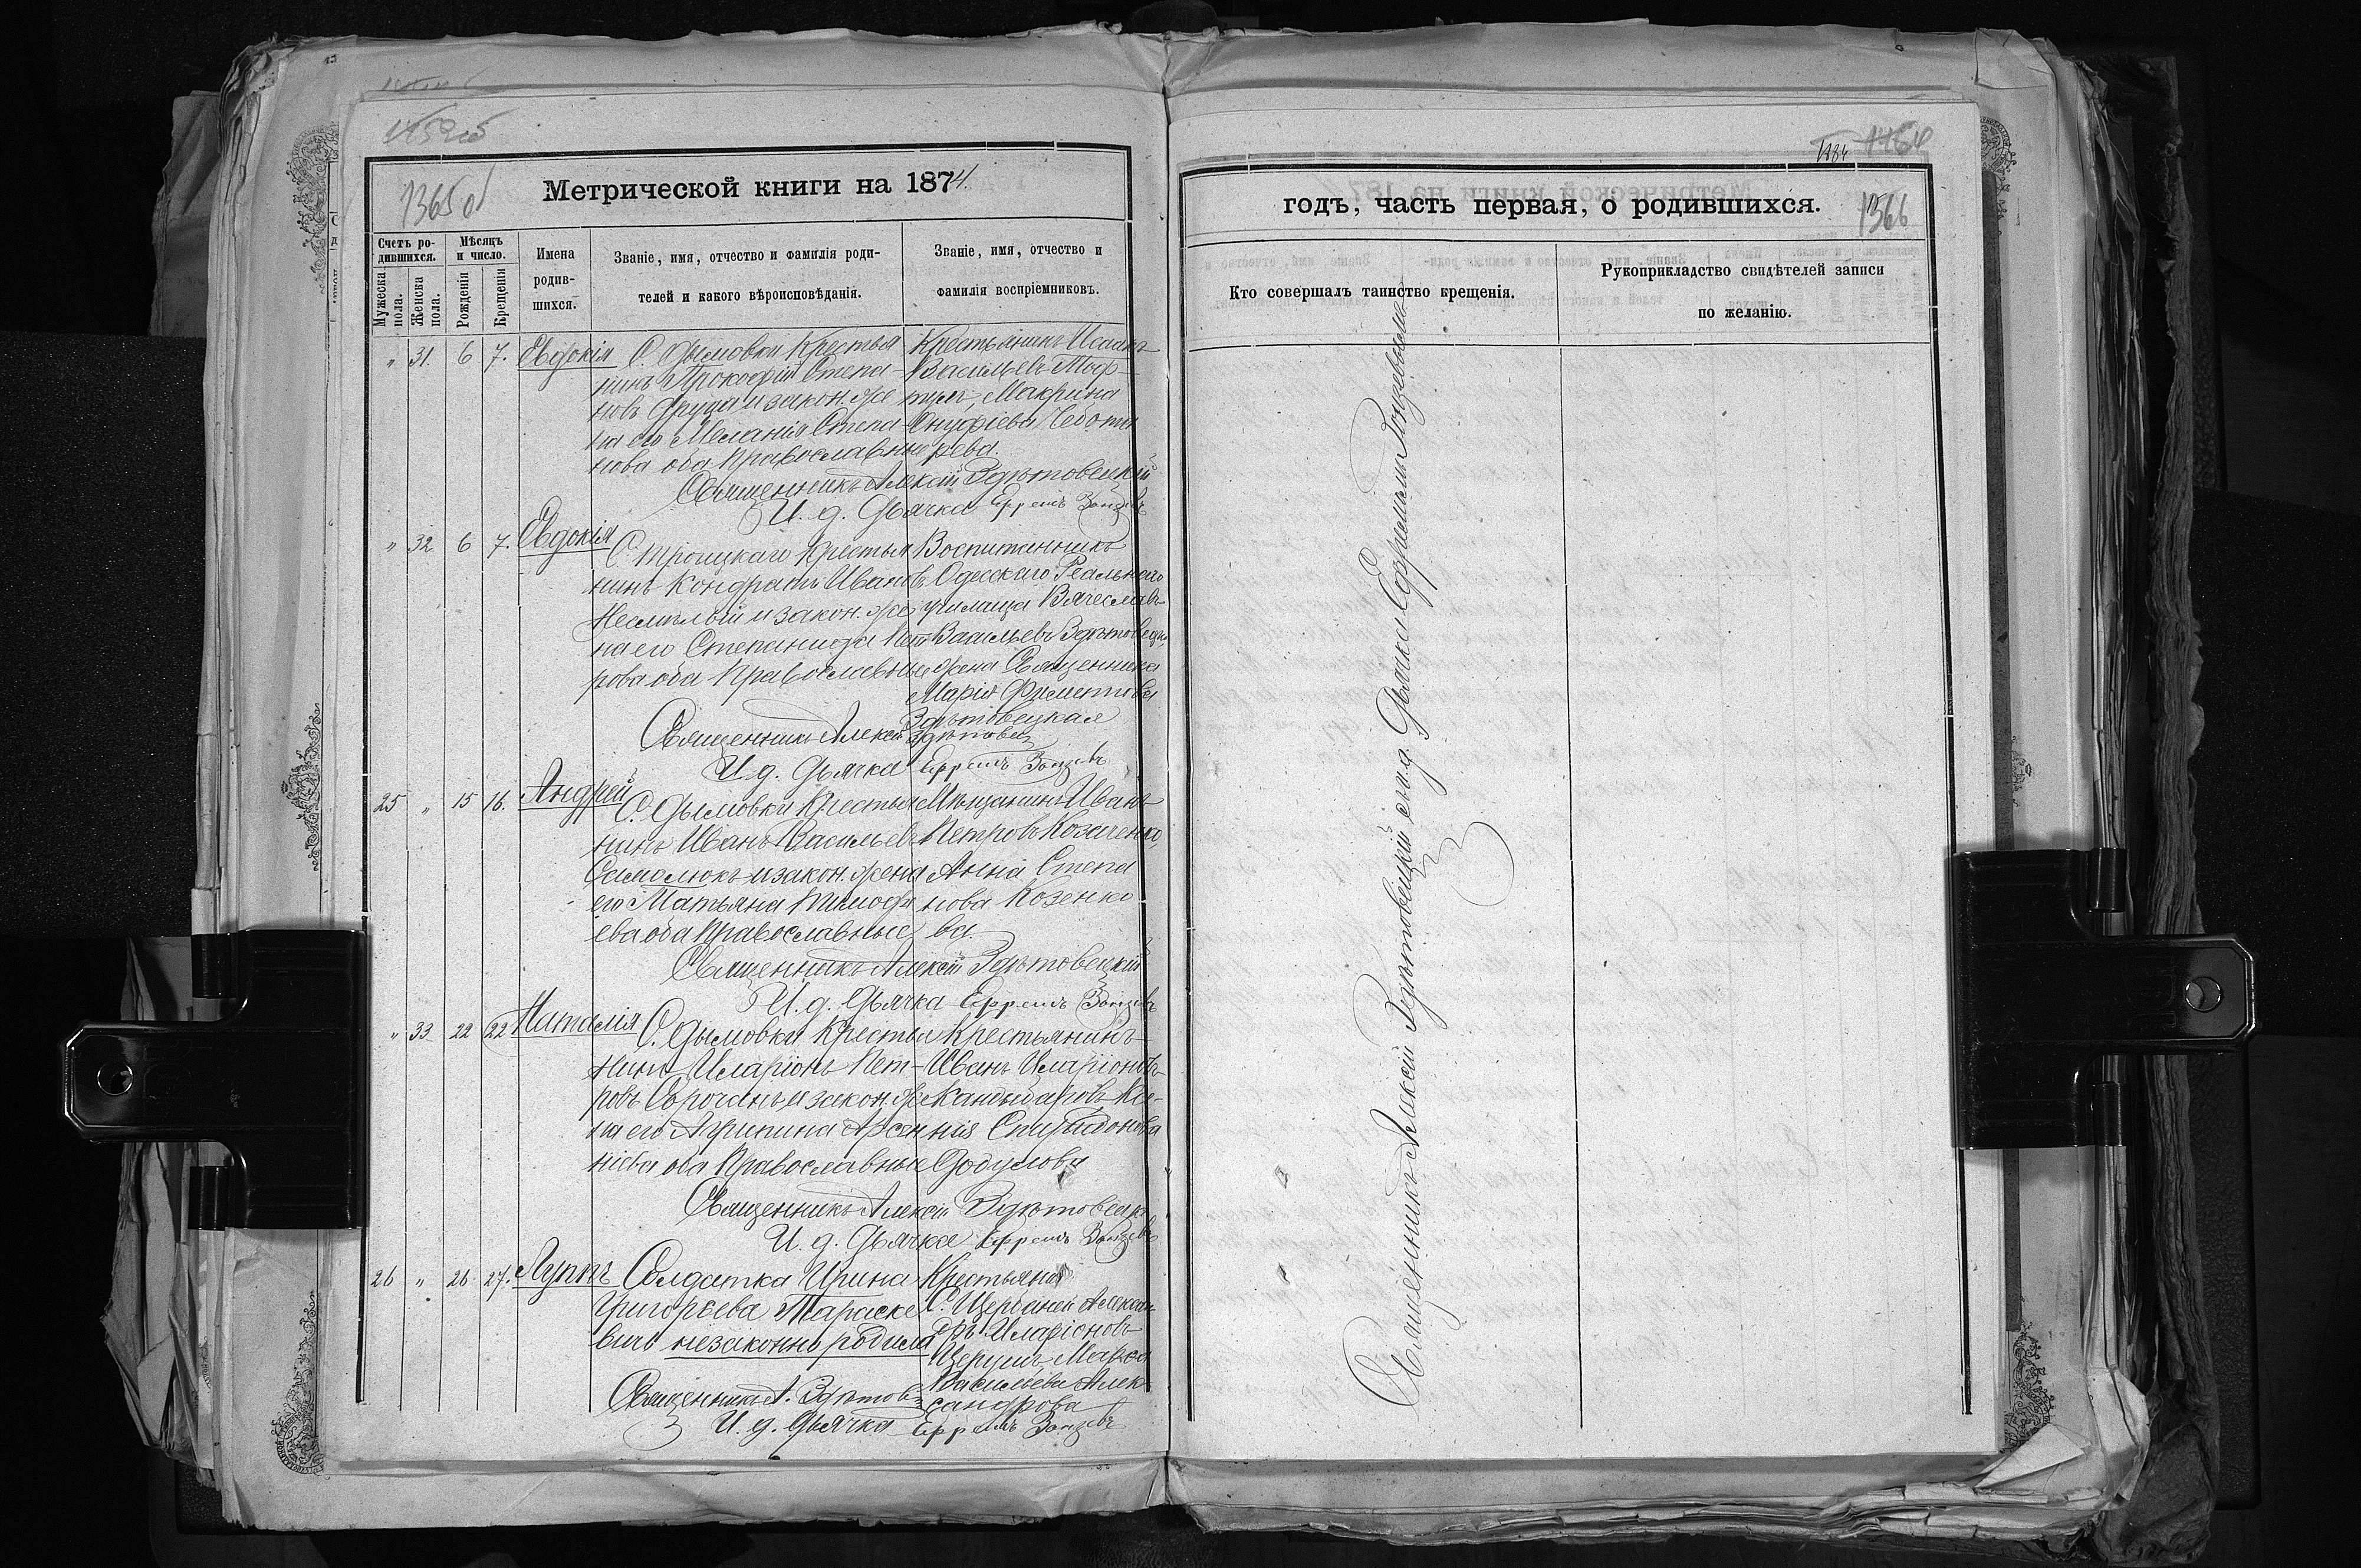 Метрической книги на 1874.
1365 об
Счетъ ро-
дившихся.
Мужеска
пола.
Женска
пола.
Мѣсяцъ
и число.
Рожденія
Крещенія
Имена
родив-
шихся.
Званіе, имя, отчество и фамилія роди-
телей и какого вѣроисповѣданія.
Званіе, имя, отчество и
фамилія воспріемниковъ.
" 31. 6 7. Евдокія
С. Дымовки Крестья
нинъ Прокофій Степа-
новъ Друца и закон. же
на его Меланія Степа
нова оба Православные
Крестьянинъ Исаакъ
Васильевъ
Макрина
Онуфріева Чебота
рева.
Священникъ Алексій Здѣтовецкій
И. д. Дьячка Ефремъ
" 32 6 7. Евдокія
С. Троицкаго Крестья
нинъ Кондратъ Ивановъ
и закон. же
на его Степанида Пет
рова оба Православные
Воспитанникъ
Одесскаго Реальнаго
училища Вячеславъ
Васильевъ
жена Священника
Марія
Здѣтовецкая
Священникъ Алексій Здѣтовец
И. д. Дьячка Ефремъ
25 " 15 16. Андрей
С. Дымовки Крестья
нинъ Иванъ Васильевъ
Самолюкъ и закон. жена
его Татьяна Тимофе
ева оба Православные
Мѣщанинъ Иванъ
Петровъ Козаченко,
Анна Степа
нова Козенко
ва.
Священникъ Алексій Здѣтовецкій
И. д. Дьячка Ефремъ
" 33 22 22 Наталія
С. Дымовки Крестья
нинъ Иларіонъ Пет-
ровъ и закон. же
на его Агрипина Арсе
ніева оба Православные
Крестьянинъ
Иванъ Иларіоновъ
Спиридонова
Священникъ Алексій Здѣтовецк
И. д. Дьячка Ефремъ
26 " 26 27. Луппъ
Солдатка Ирина
Григорьева Тараске
вичъ незаконно родила
Крестьяне
С. Щербанки Алексан
дръ Иларіоновъ
Марѳа
Васильева Алек-
сандрова
Священникъ А. Здѣтовец
И. д. Дьячка Ефремъ
годъ, часть первая, о родившихся.
1366
Кто совершалъ таинство крещенія.
Рукоприкладство свидѣтелей записи
по желанію.
Священникъ Алексій Здѣтовецкій съ и. д. Дьячка Ефремомъ